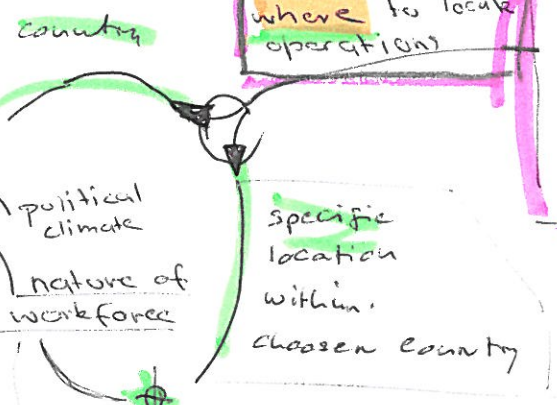 country
where to locate
operations
political
climate
nature of
workforce
specific
location
within
choosen country